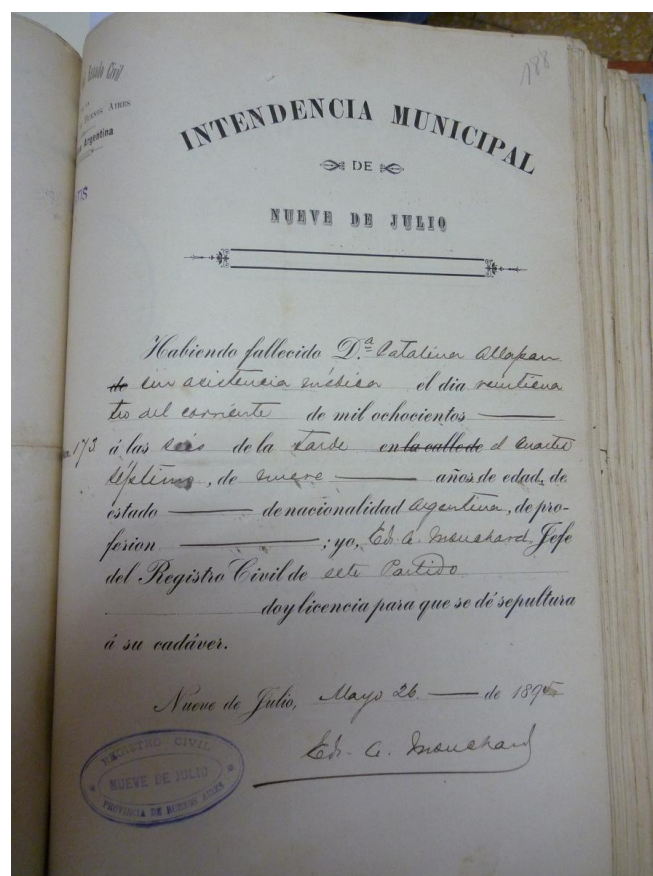 188
Estado Civil
Buenos Aires
Argentina
INTENDENCIA MUNICIPAL
DE
NUEVE DE JULIO
Habiendo fallecido D.ª Catalina Allapan
de sin asistencia médica el dia veinticua
tro del corriente de mil ochocientos
173 á las seis de la tarde en la calle de el cuartel
séptimo, de nueve años de edad, de
estado de nacionalidad Argentina, de pro-
fesion ; yo, Ed. A. Mouchard Jefe
del Registro Civil de este Partido
doy licencia para que se dé sepultura
á su cadáver.
Nueve de Julio, Mayo 26 de 1895
Ed. A. Mouchard
REGISTRO CIVIL
NUEVE DE JULIO
PROVINCIA DE BUENOS AIRES